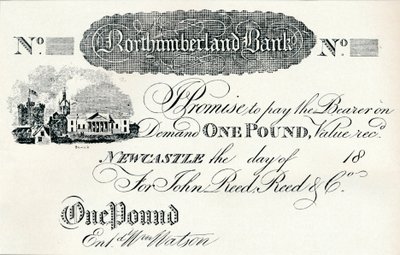 No Northumberland Bank No
Promise to pay the Bearer on
Demand ONE POUND, Value recd.
NEWCASTLE the day of 18
For John Reed, Reed & Co.
One Pound
Entd. Wm Watson